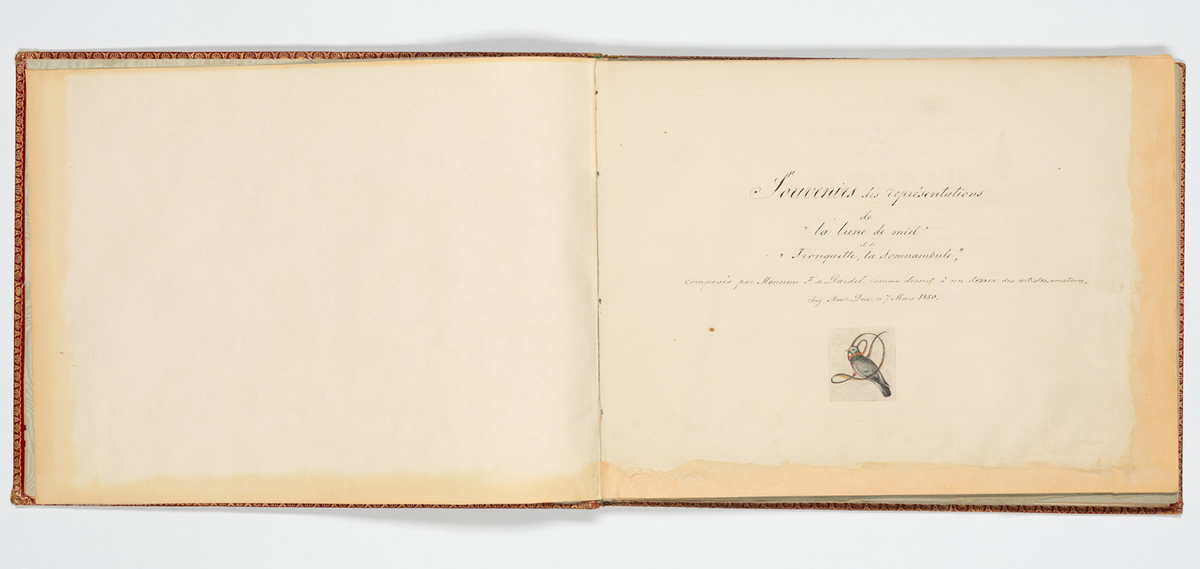 Souvenirs des représentations
de
"la lune de miel"
et de
"Fronquette, la Somnambule,"
composés par Monsieur F. de Dardel comme dessert à un dîner des artistes-amateurs,
chez Mme Due, le 7 Mars 1880.